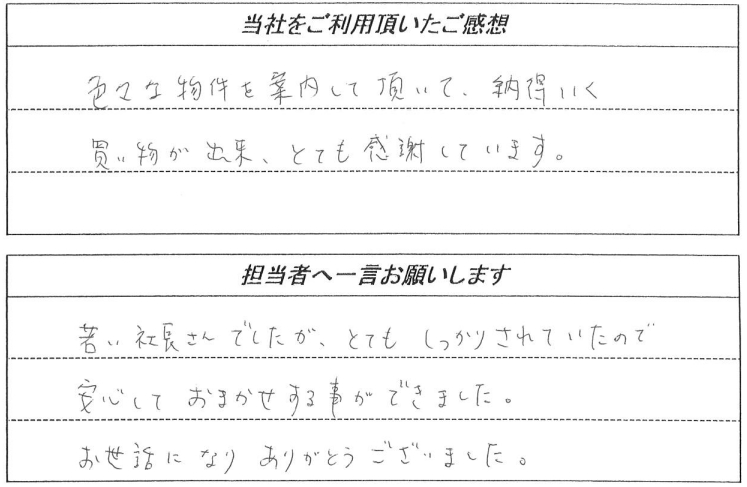 当社をご利用頂いたご感想
色々な物件を案内して頂いて、納得いく
買い物が出来、とても感謝しています。
担当者へ一言お願いします
若い社長さんでしたが、とてもしっかりされていたので
安心しておまかせする事ができました。
お世話になりありがとうございました。